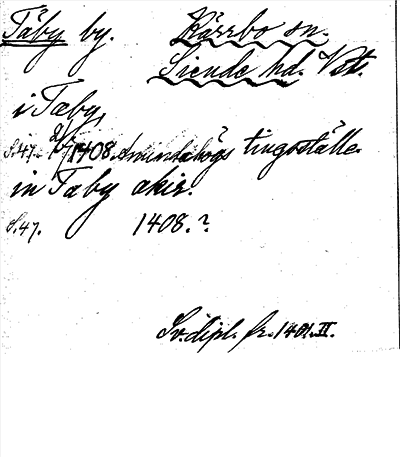 Täby by. Kärrbo sn.
Siende hd. Vstm.
i Tæby,
S.47. 1408. Amundahögs tingställe.
in Tæby akis.
S.47. 1408.?
Sv. dipl. fr. 1401. II.